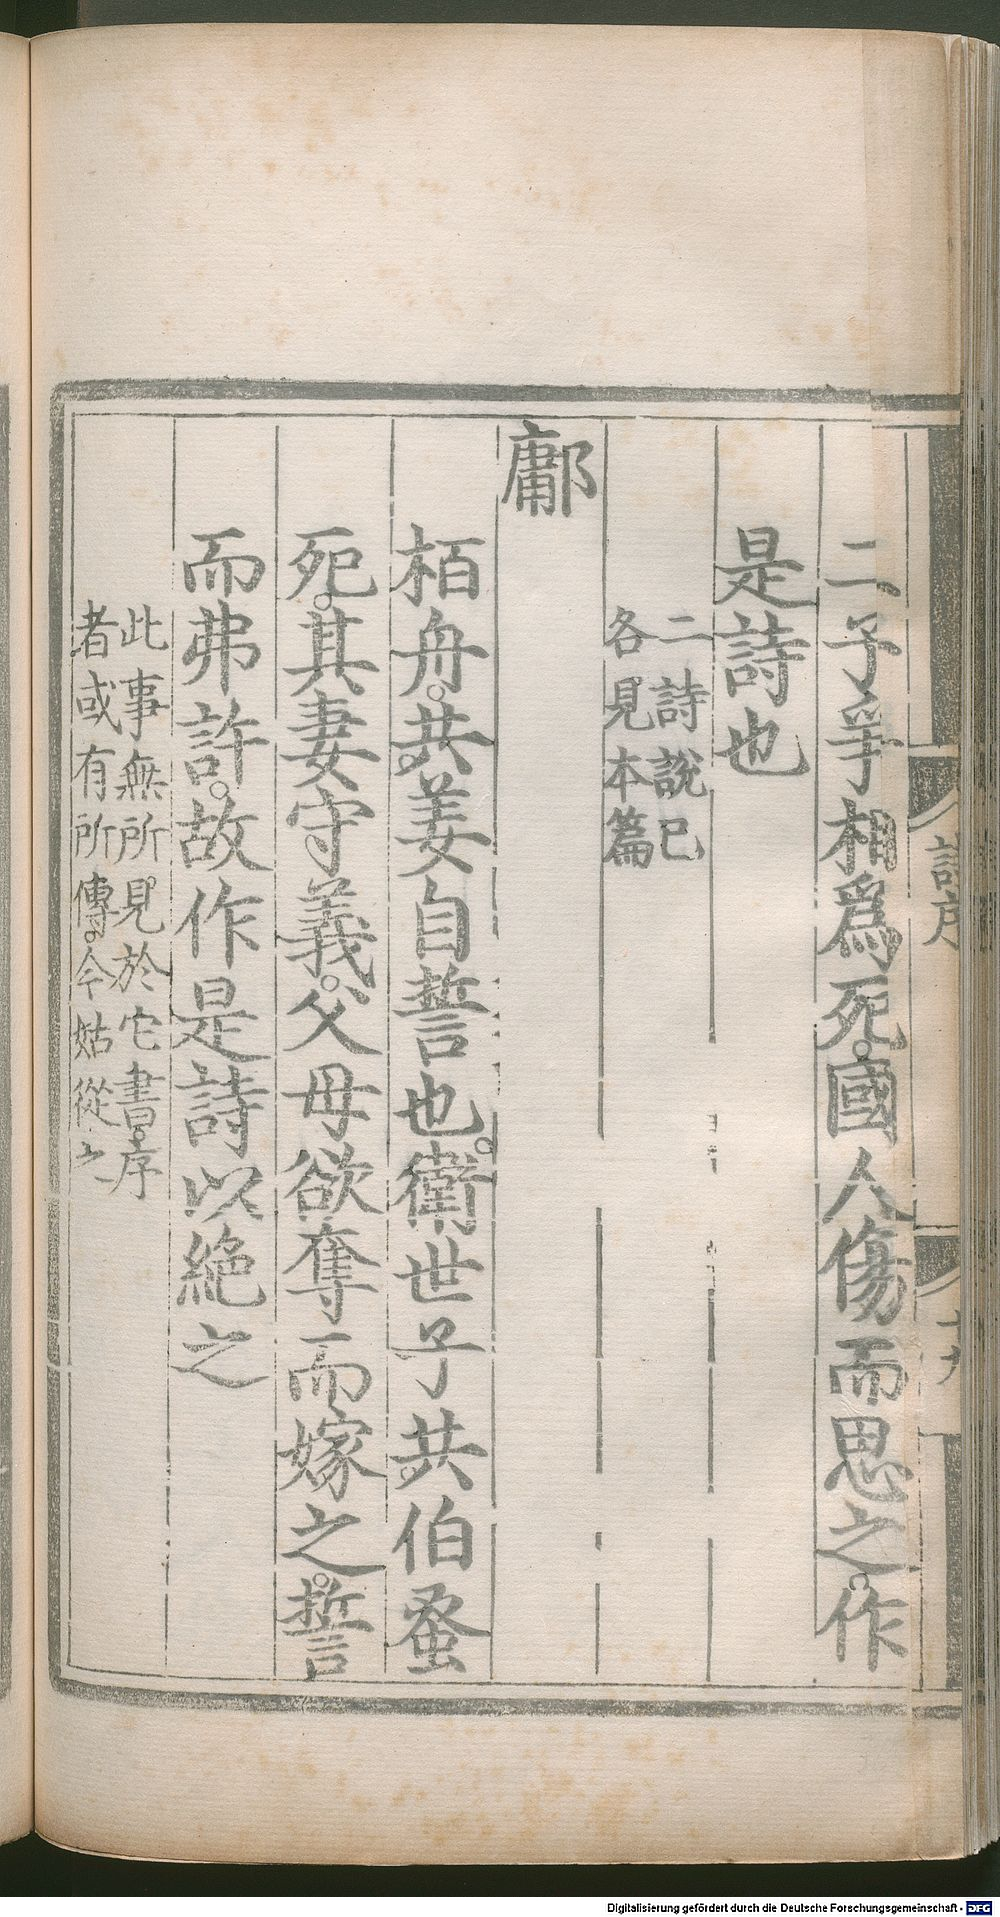 二子爭相爲死國人傷而思之作
是詩也
二詩說已
各見本篇
鄘
栢舟共姜自誓也衛世子共伯蚤
死其妻守義父母欲奪而嫁之誓
而弗許故作是詩以絕之
此事無所見於它書序
者或有所傳今姑從之
Digitalisierung gefördert durch die Deutsche Forschungsgemeinschaft - DFG